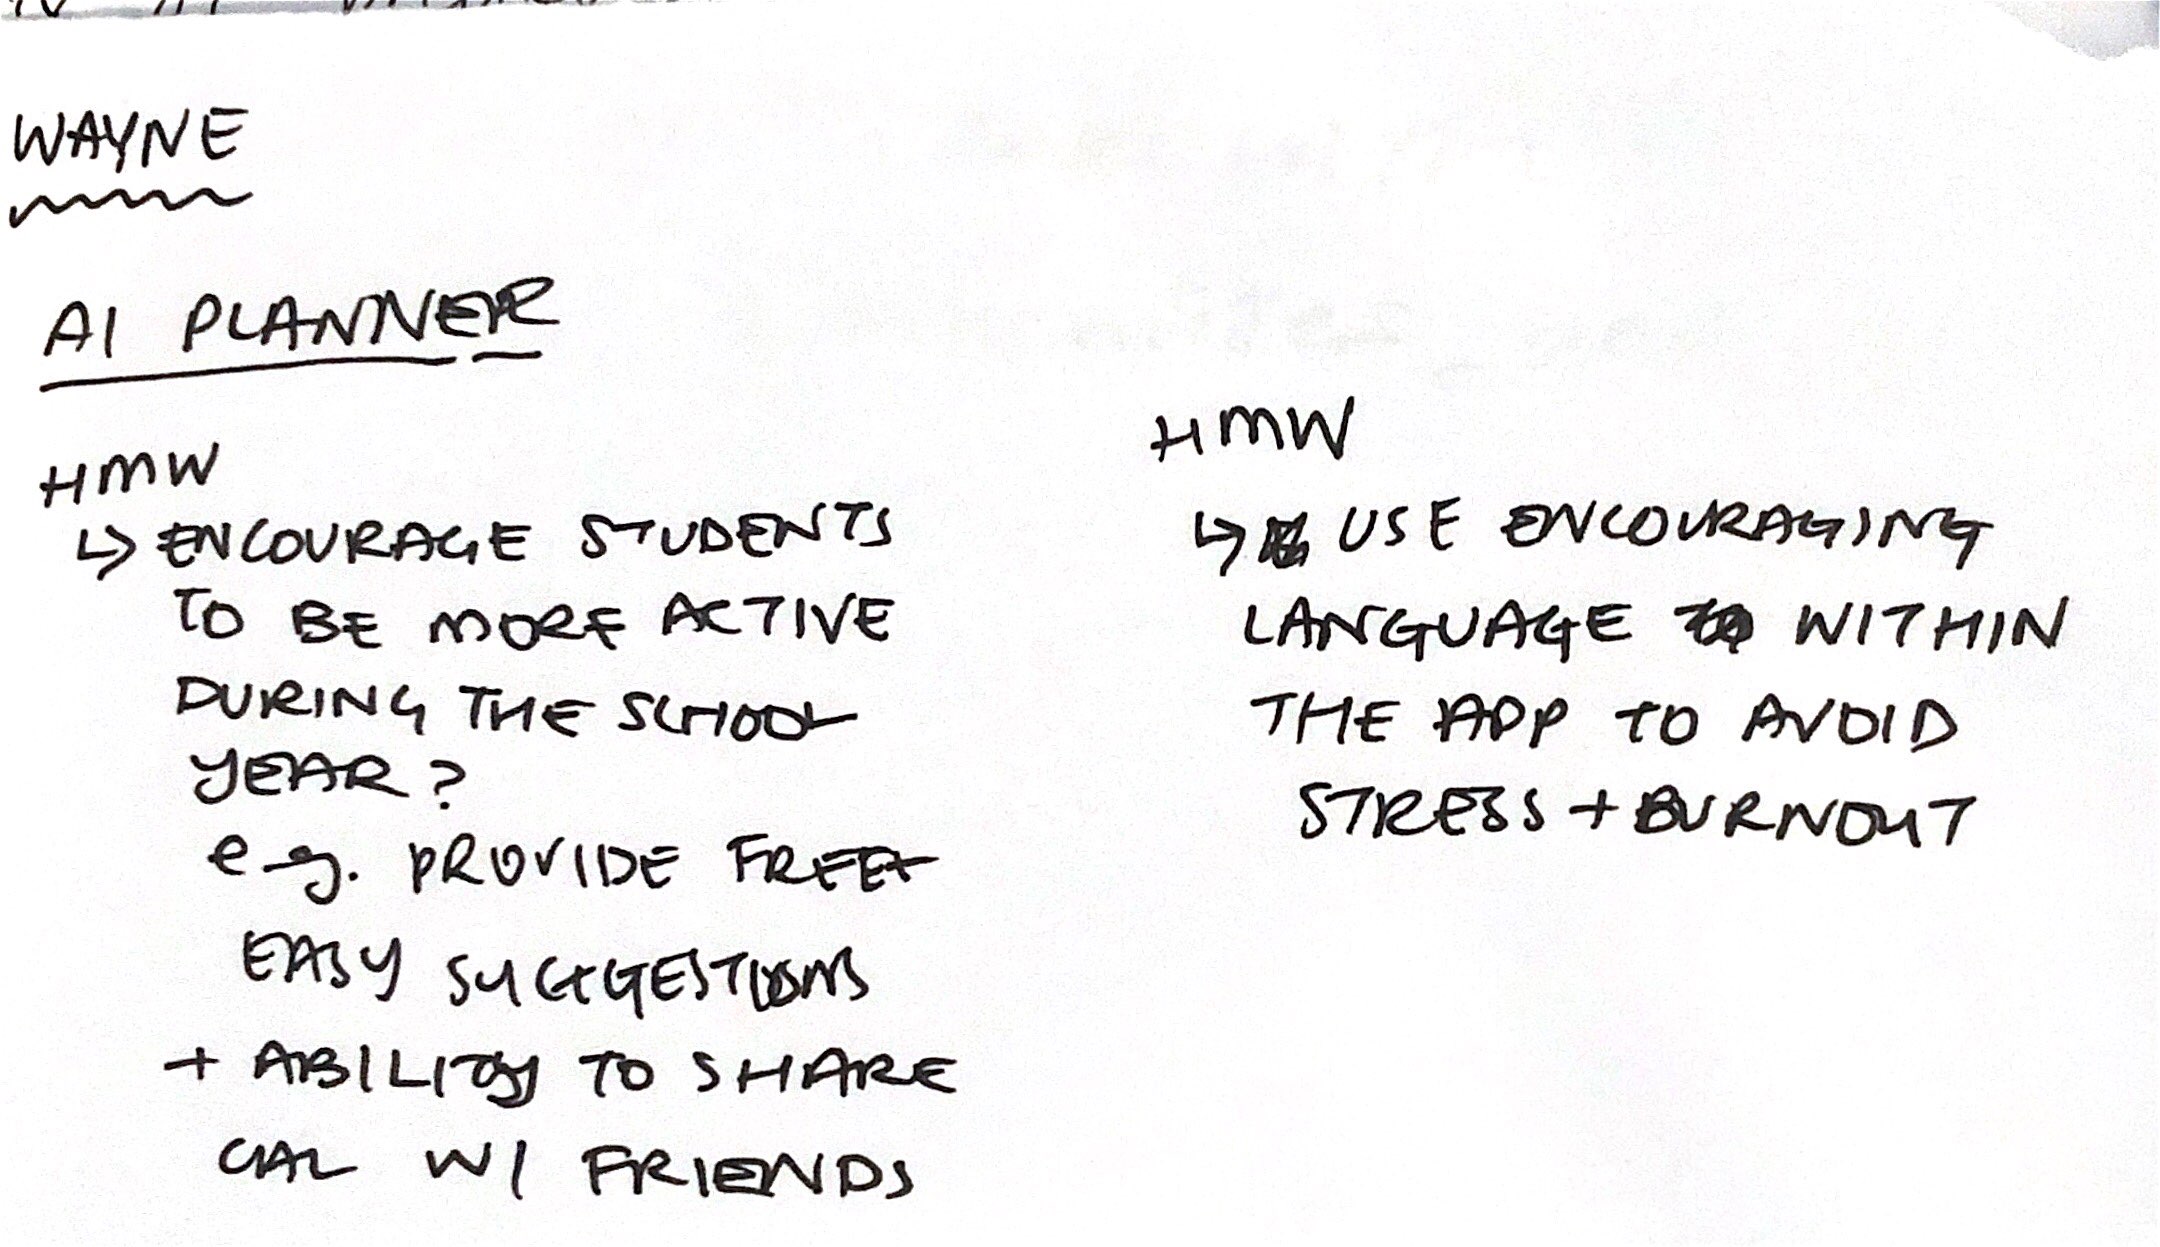 WAYNE
AI PLANNER
HMW
↳ ENCOURAGE STUDENTS
TO BE MORE ACTIVE
DURING THE SCHOOL
YEAR?
e.g. PROVIDE FREE +
EASY SUGGESTIONS
+ ABILITY TO SHARE
CAL W/ FRIENDS
HMW
↳ USE ENCOURAGING
LANGUAGE WITHIN
THE APP TO AVOID
STRESS + BURNOUT